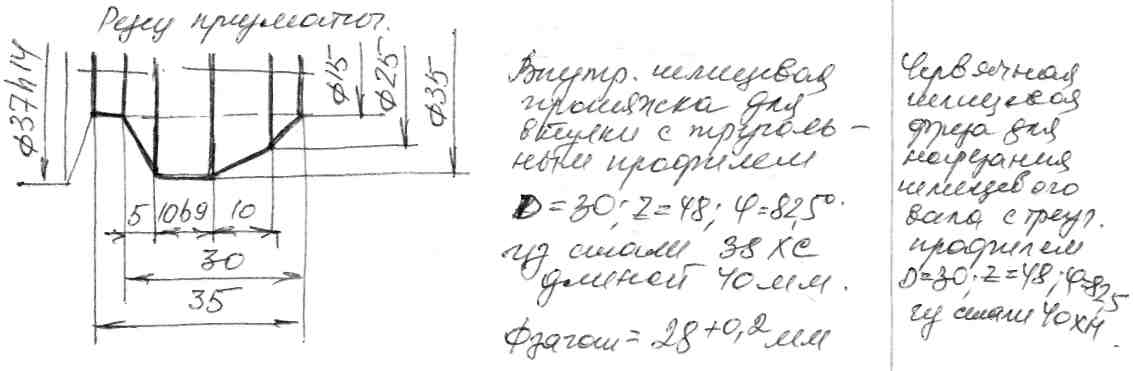 Резец призматич.
ϕ37h14
ϕ15
ϕ25
ϕ35
5
10b9
10
30
35
Внутр. шлицевая
протяжка для
втулки с треуголь-
ным профилем
D=30; Z=48; φ=82,5°.
из стали 38ХС
длиной 40мм.
ϕзагот=28+0,2 мм
Червячная
шлицевая
фреза для
нарезания
шлицевого
вала с треуг.
профилем
D=30; Z=48; φ=82,5
из стали 40ХН.